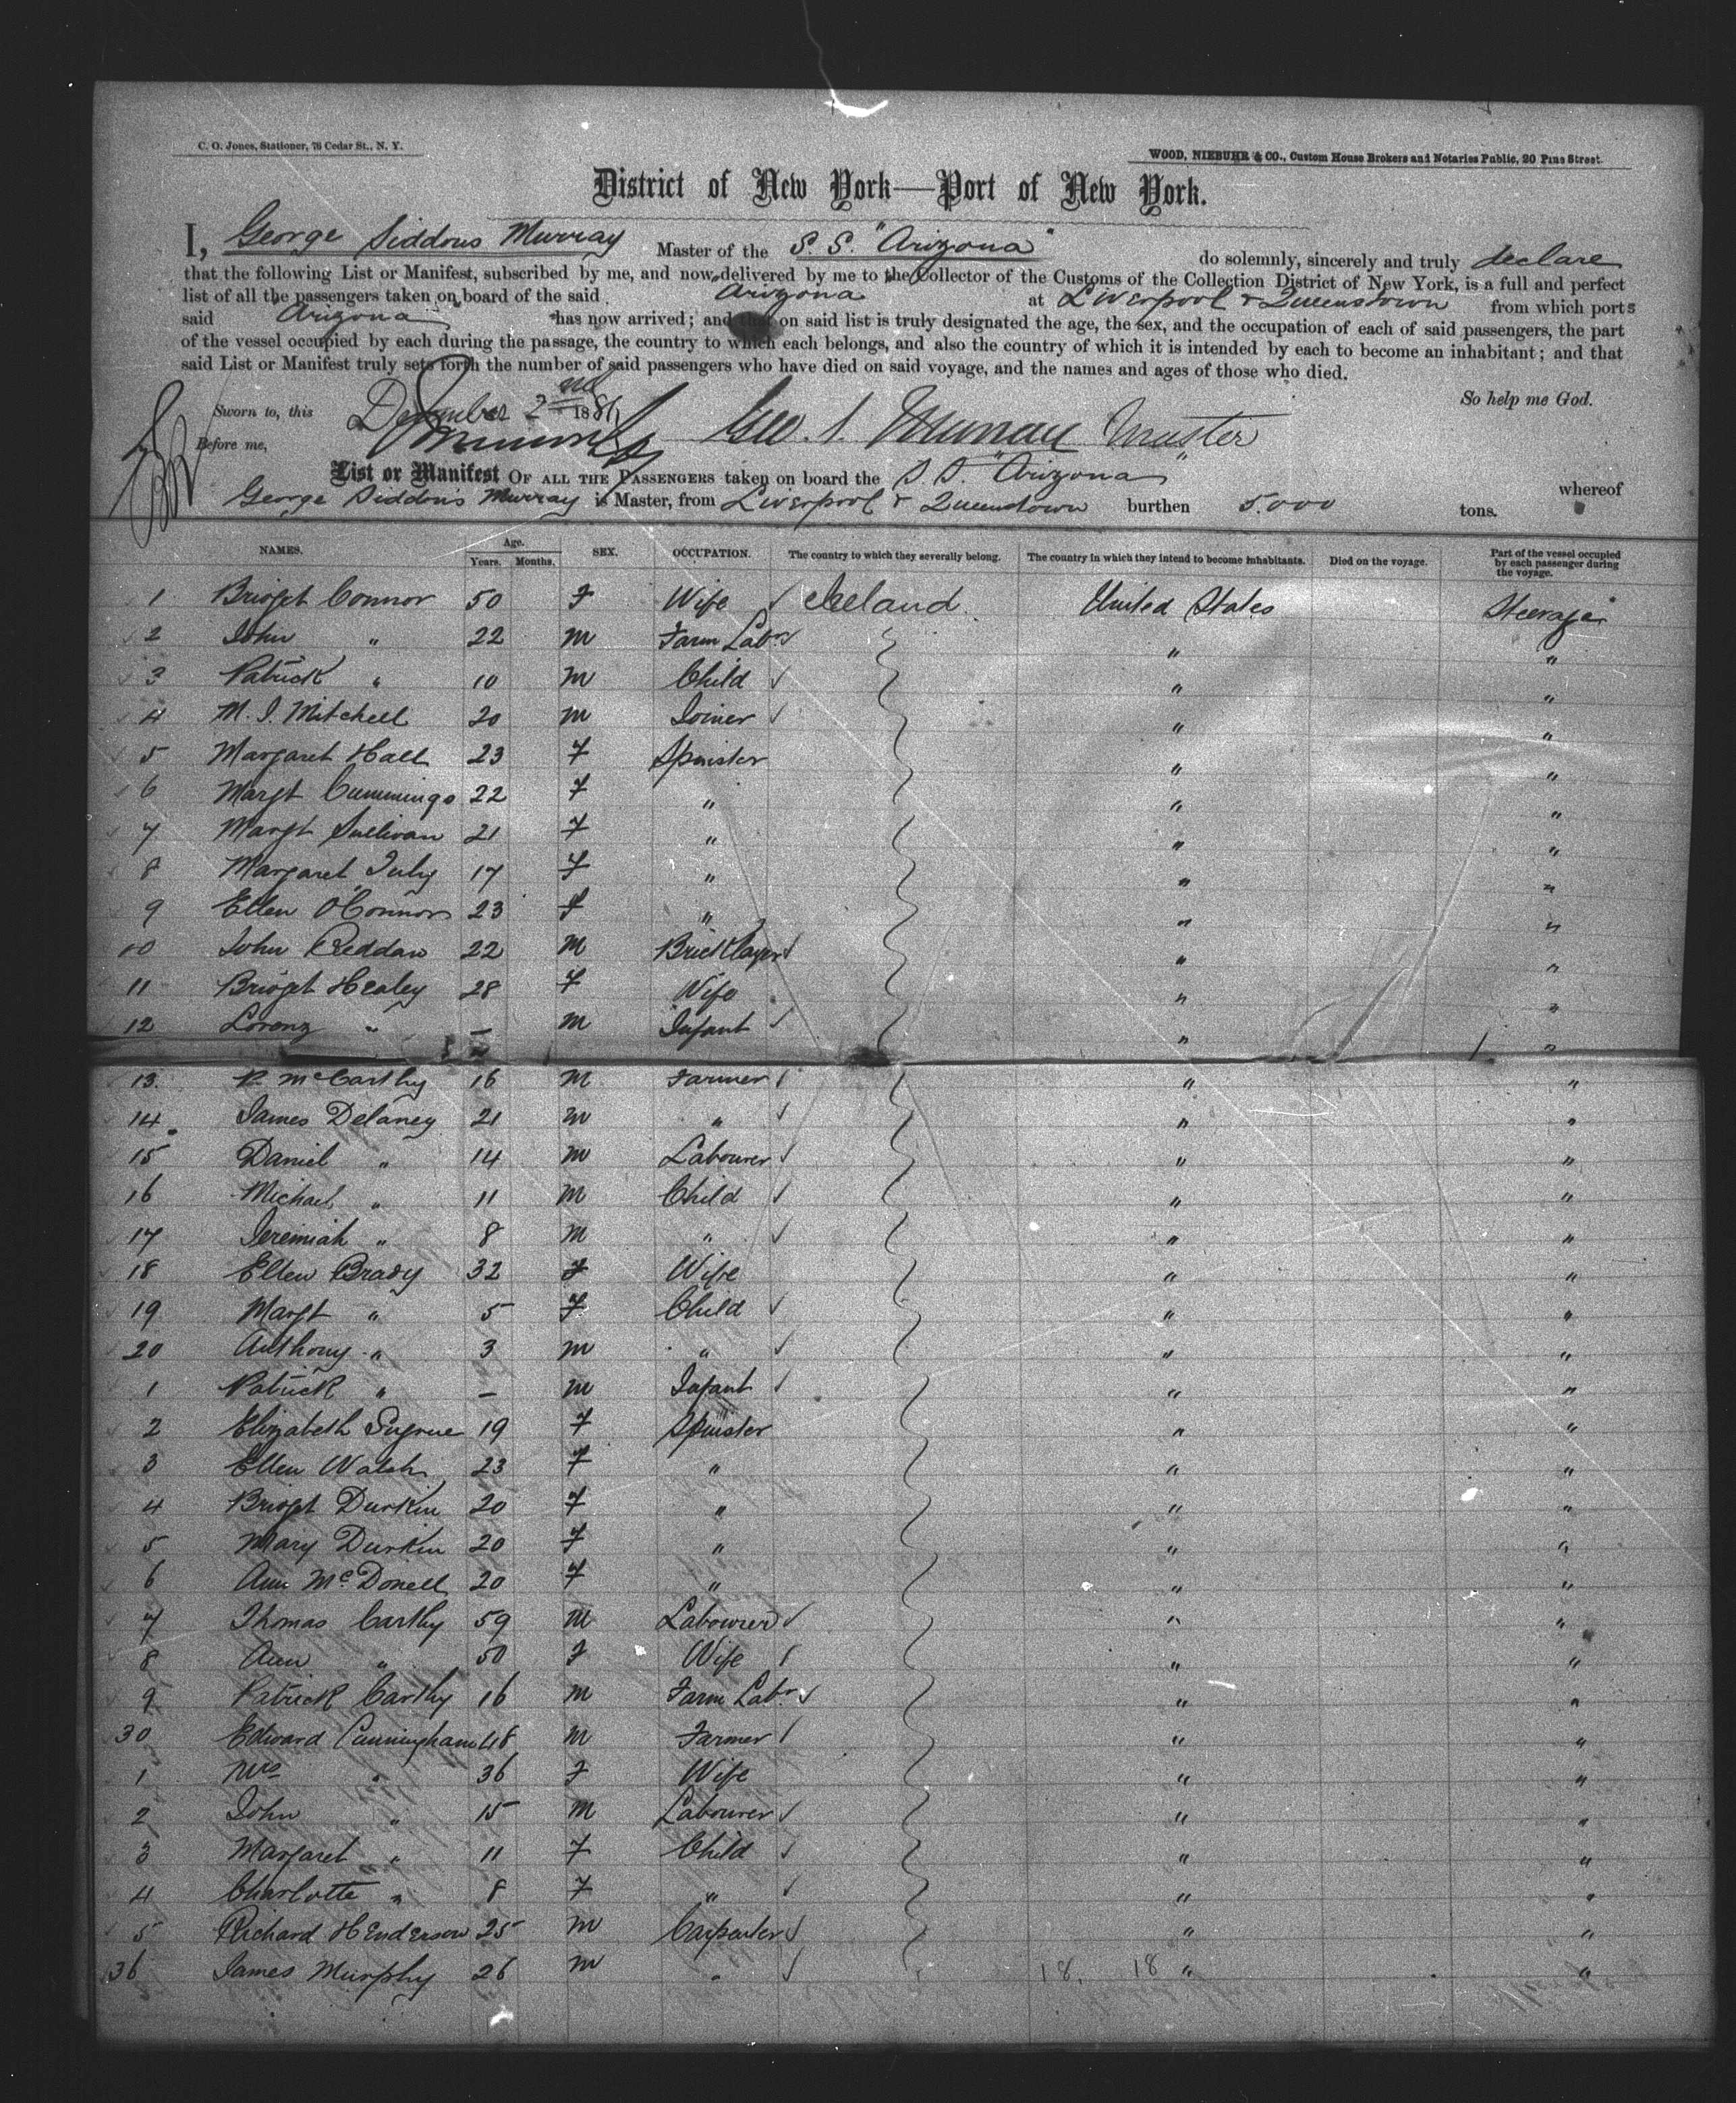 C. O. Jones, Stationer, 76 Cedar St., N. Y.
WOOD, NIEBUHR & CO., Custom House Brokers and Notaries Public, 20 Pine Street.
District of New York—Port of New York.
I, George Siddons Murray Master of the S. S. "Arizona" do solemnly, sincerely and truly declare
that the following List or Manifest, subscribed by me, and now delivered by me to the Collector of the Customs of the Collection District of New York, is a full and perfect
list of all the passengers taken on board of the said Arizona at Liverpool & Queenstown from which ports
said "Arizona" has now arrived; and that on said list is truly designated the age, the sex, and the occupation of each of said passengers, the part
of the vessel occupied by each during the passage, the country to which each belongs, and also the country of which it is intended by each to become an inhabitant; and that
said List or Manifest truly sets forth the number of said passengers who have died on said voyage, and the names and ages of those who died.
So help me God.
Sworn to, this December 2nd 188
Before me, Geo. S. Murray Master
List or Manifest OF ALL THE PASSENGERS taken on board the S. S. "Arizona" whereof
George Siddons Murray is Master, from Liverpool & Queenstown burthen 5.000 tons.
NAMES. Age. Years. Months. SEX. OCCUPATION. The country to which they severally belong. The country in which they intend to become inhabitants. Died on the voyage. Part of the vessel occupied by each passenger during the voyage.
1 Bridget Connor 50 F Wife Ireland United States Steerage
2 John " 22 M Farm Labr " "
3 Patrick " 10 M Child " "
4 M. J. Mitchell 20 M Joiner " "
5 Margaret Hall 23 F Spinster " "
6 Margt Cummings 22 F " " "
7 Margt Sullivan 21 F " " "
8 Margaret 17 F " " "
9 Ellen O'Connor 23 F " " "
10 John Reddan 22 M Bricklayer " "
11 Bridget Healey 28 F Wife " "
12 Lorenz " – M Infant " "
13 P. McCarthy 16 M Farmer " "
14 James Delaney 21 M " " "
15 Daniel " 14 M Labourer " "
16 Michael " 11 M Child " "
17 Jeremiah " 8 M " " "
18 Ellen Brady 32 F Wife " "
19 Margt " 5 F Child " "
20 Anthony " 3 M " " "
1 Patrick " – M Infant " "
2 Elizabeth Sugrue 19 F Spinster " "
3 Ellen Walsh 23 F " " "
4 Bridget Durkin 20 F " " "
5 Mary Durkin 20 F " " "
6 Ann McDonell 20 F " " "
7 Thomas Carthy 59 M Labourer " "
8 Ann " 50 F Wife " "
9 Patrick Carthy 16 M Farm Labr " "
30 Edward Cunningham 48 M Farmer " "
1 Mrs " 36 F Wife " "
2 John " 15 M Labourer " "
3 Margaret " 11 F Child " "
4 Charlotte " 8 F " " "
5 Richard Henderson 25 M Carpenter " "
36 James Murphy 26 M " 18. 18 " "